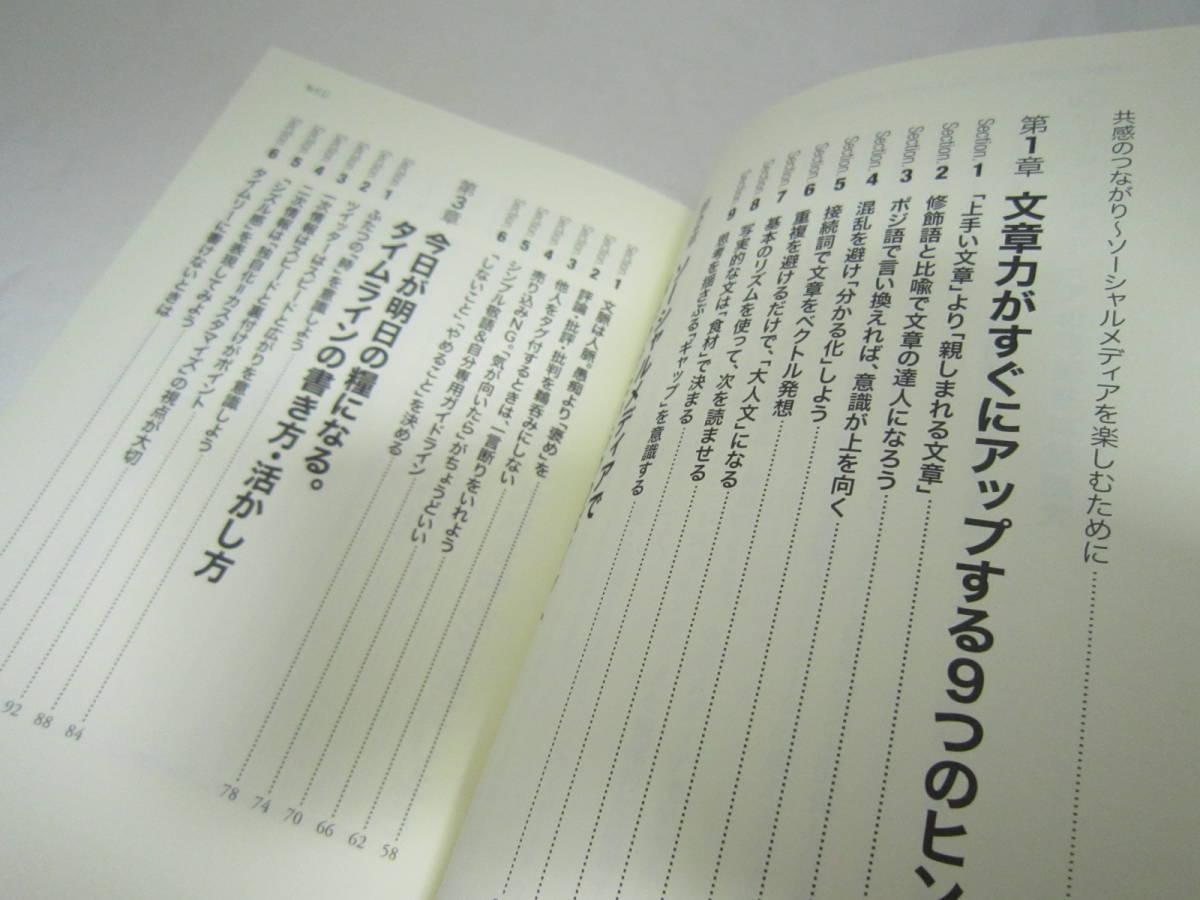 共感のつながり~ソーシャルメディアを楽しむために
第1章 文章力がすぐにアップする9つのヒン
Section. 1 「上手い文章」より「親しまれる文章」
Section. 2 修飾語と比喩で文章の達人になろう
Section. 3 ポジ語で言い換えれば、意識が上を向く
Section. 4 混乱を避け「分かる化」しよう
Section. 5 接続詞で文章をベクトル発想
Section. 6 重複を避けるだけで、「大人文」になる
Section. 7 基本のリズムを使って、次を読ませる
Section. 8 写実的な文は「食材」で決まる
Section. 9 思考を揺さぶる「ギャップ」を意識する
ソーシャルメディアで
Section. 1 文脈は人脈。愚痴より「褒め」を
Section. 2 評論・批評・批判を鵜呑みにしない
Section. 3 他人をタグ付するときは、一言断りをいれよう
Section. 4 売り込みNG。「気が向いたら」がちょうどいい
Section. 5 シンプル敬語&自分専用ガイドライン
Section. 6 「しないこと」「やめること」を決める
第3章 今日が明日の糧になる。
タイムラインの書き方・活かし方
Section. 1 ふたつの「時」を意識しよう 58
Section. 2 ツイッターはスピードと広がりを意識しよう 62
Section. 3 一次情報はスピードと裏付けがポイント 66
Section. 4 二次情報は「独自化」「カスタマイズ」の視点が大切 70
Section. 5 「シズル感」を表現してみよう 74
Section. 6 タイムリーに書けないときは 78
84
88
92